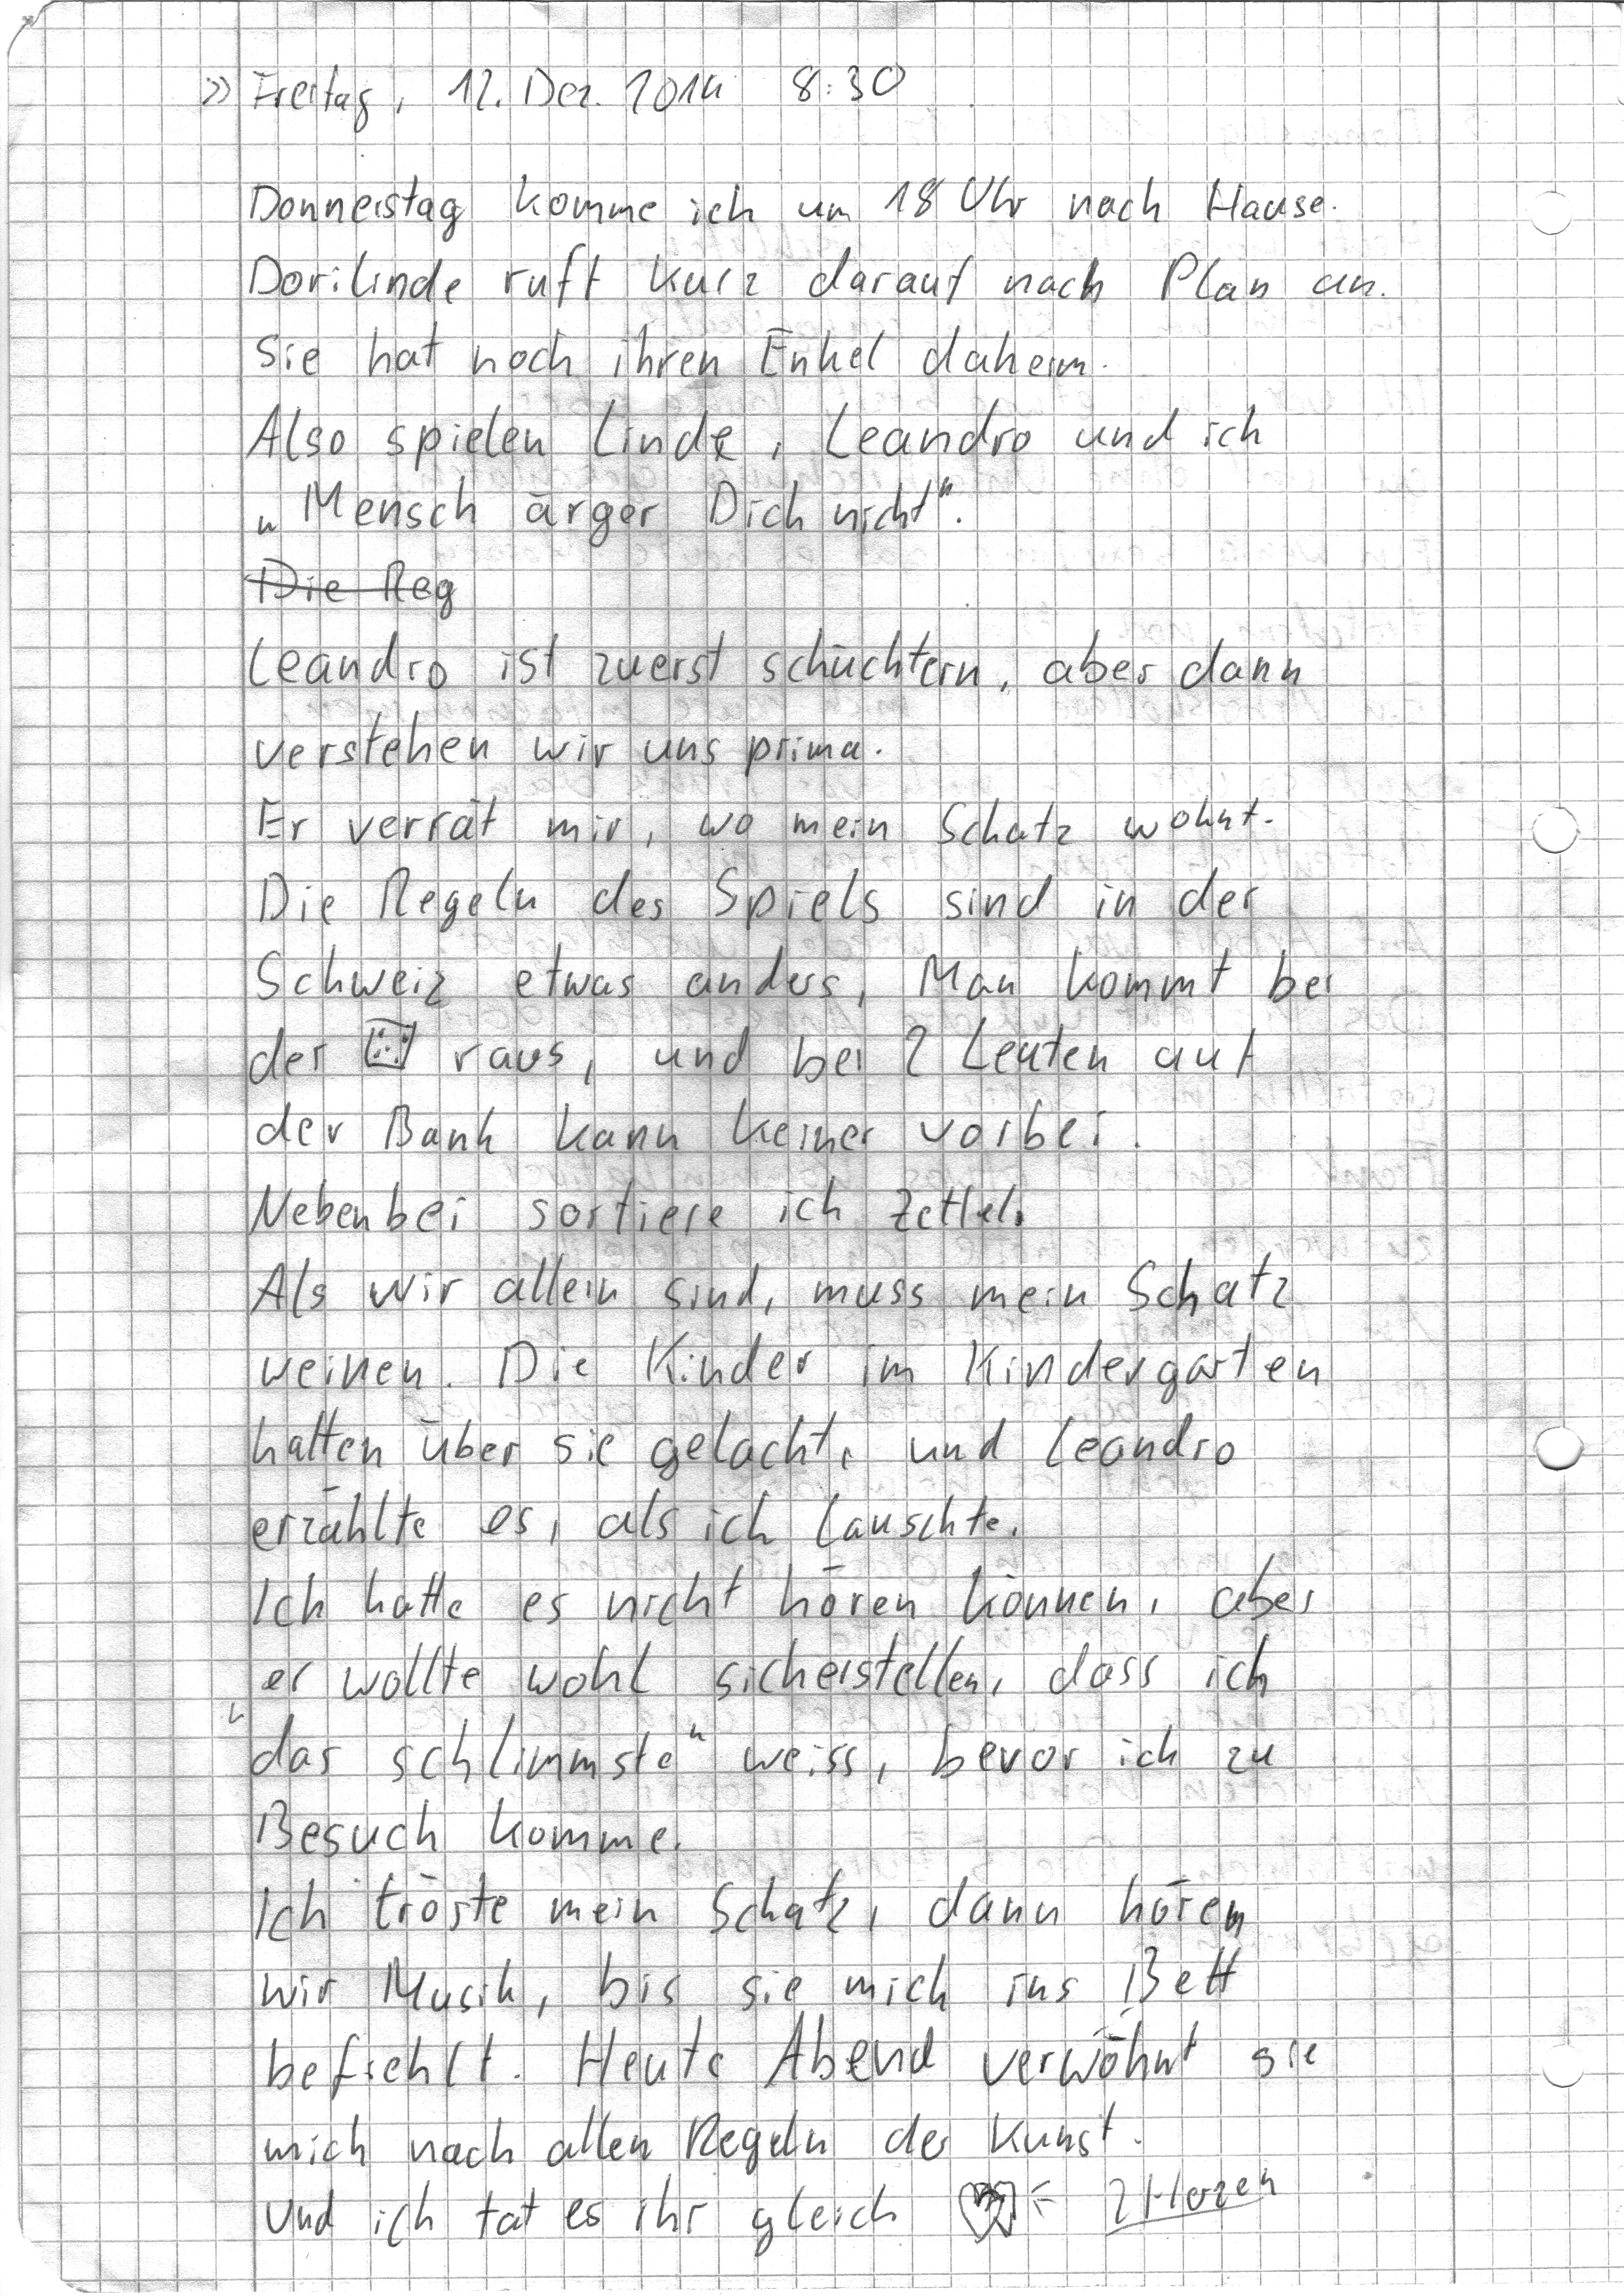 >> Freitag, 12. Dez. 2014 8:30
Donnerstag komme ich um 18 Uhr nach Hause.
Dorilinde ruft kurz darauf nach Plan an.
Sie hat noch ihren Enkel daheim.
Also spielen Linde, Leandro und ich
„Mensch ärger Dich nicht".
Die Reg
Leandro ist zuerst schüchtern, aber dann
verstehen wir uns prima.
Er verrät mir, wo mein Schatz wohnt.
Die Regeln des Spiels sind in der
Schweiz etwas anders, Man kommt bei
der ⚄ raus, und bei 2 Leuten auf
der Bank kann keiner vorbei.
Nebenbei sortiere ich Zettel.
Als wir allein sind, muss mein Schatz
weinen. Die Kinder im Kindergarten
hatten über sie gelacht, und Leandro
erzählte es, als ich lauschte.
Ich hatte es nicht hören können, aber
er wollte wohl sicherstellen, dass ich
"das schlimmste" weiss, bevor ich zu
Besuch komme.
Ich tröste mein Schatz, dann hören
wir Musik, bis sie mich ins Bett
befiehlt. Heute Abend verwöhnt sie
mich nach allen Regeln der Kunst.
Und ich tat es ihr gleich = 2 Herzen